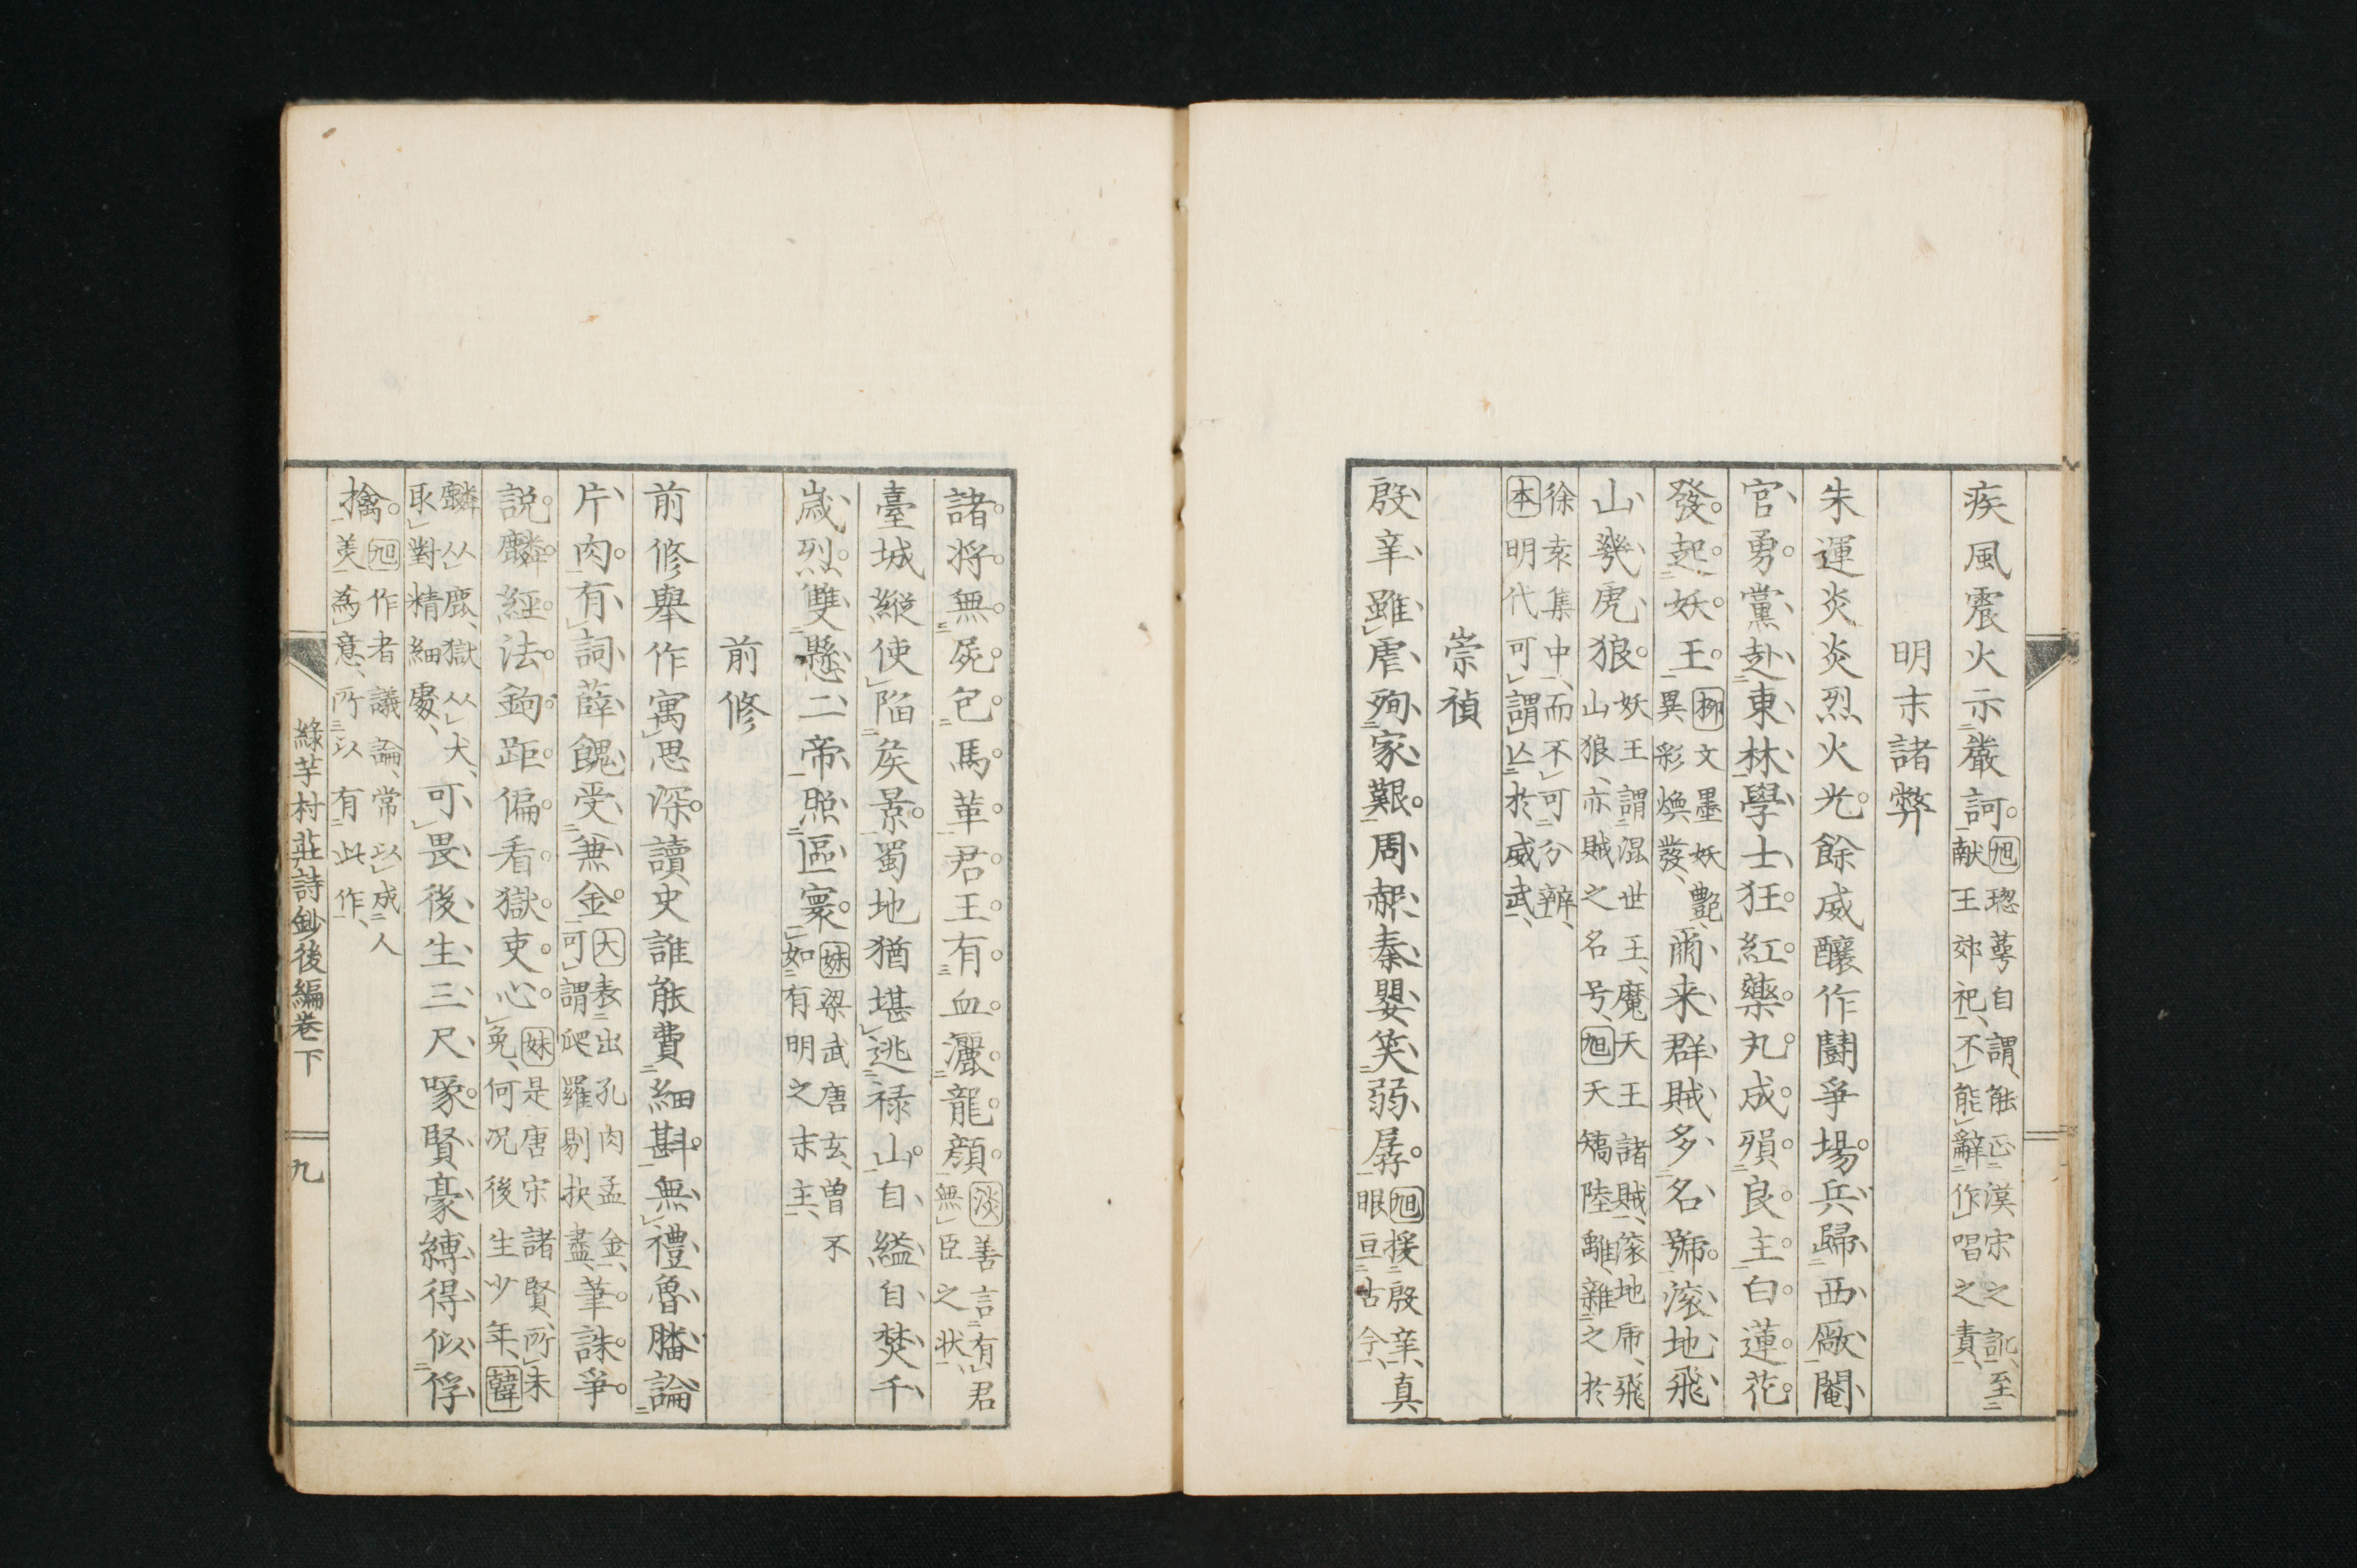 疾風震火示嚴訶旭璁萼自謂能正漢宋之訛至
献王郊祀不能辭作唱之責
明末諸弊
朱運炎炎烈火光餘威釀作鬪爭場兵歸西厰閹
官勇黨赴東林學士狂紅藥丸成殞良主白蓮花
發起妖王柳文墨妖艷
異彩煥發爾来群賊多名號滚地飛
山幾虎狼妖王謂混世王魔天王諸賊滚地席飛
山狼亦賊之名号旭天矯陸離雜之於
徐袁集中而不可分辨
本明代可謂亾於威武
崇禎
殷辛雖虐殉家艱周赧秦嬰笑弱孱旭援殷辛真
眼亘古今
諸将無屍包馬革君王有血灑龍顔淡善言有君
無臣之状
臺城縱使陷矦景蜀地猶堪逃禄山自縊自焚千
歳烈雙懸二帝照區寰妹梁武唐玄曽不
如有明之末主
前修
前修舉作寓思深讀史誰能費細斟無禮魯膰論
片肉有詞薛餽受兼金大表出孔肉孟金
可謂爬羅剔抉盡筆誅爭
説麟經法鉤距偏看獄吏心妹是唐宋諸賢所未
免何况後生少年韓
麟从鹿獄从犬可
取對精細處畏後生三尺喙賢豪縛得似俘
擒旭作者議論常以成人
美為意所以有此作
綠芋村莊詩鈔後編卷下
九